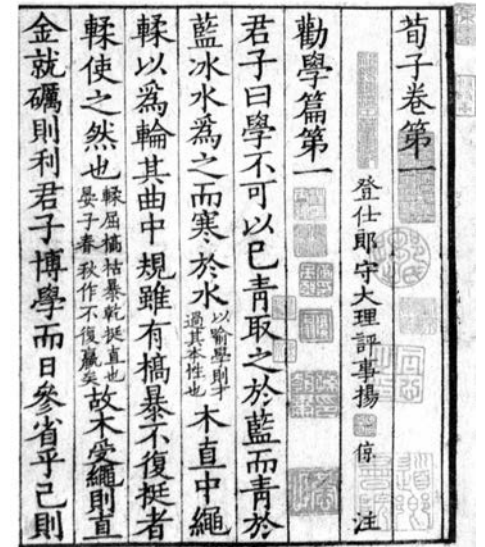 荀子卷第一
登仕郎守大理評事楊倞注
勸學篇第一
君子曰學不可以已青取之於藍而青於
藍冰水為之而寒於水以喻學則才過其本性也木直中繩
輮以為輪其曲中規雖有槁暴不復挺者
輮使之然也輮屈槁枯暴乾挺直也晏子春秋作不復贏矣故木受繩則直
金就礪則利君子博學而日參省乎己則